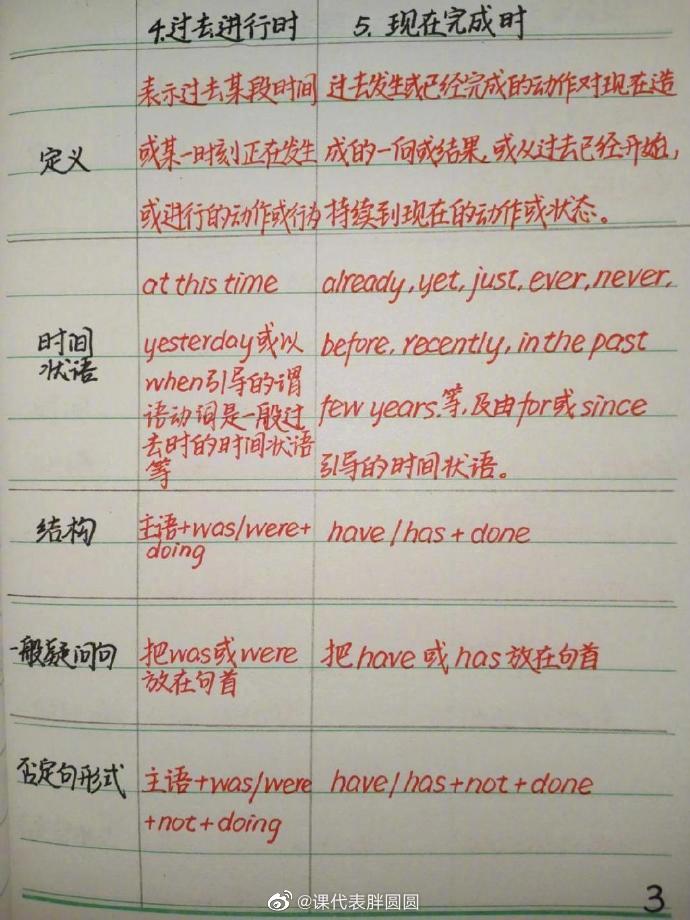 4.过去进行时 5. 现在完成时
定义
表示过去某段时间
或某一时刻正在发生
或进行的动作或行为
过去发生或已经完成的动作对现在造
成的一向或结果,或从过去已经开始,
持续到现在的动作或状态。
时间
状语
at this time
yesterday或以
when引导的谓
语动词是一般过
去时的时间状语
等
already, yet, just, ever, never,
before, recently, in the past
few years.等,及由for或since
引导的时间状语。
结构
主语+was/were+
doing
have/has+done
一般疑问句
把was或were
放在句首
把have或has放在句首
否定句形式
主语+was/were
+not+doing
have/has+not+done
3
@课代表胖圆圆